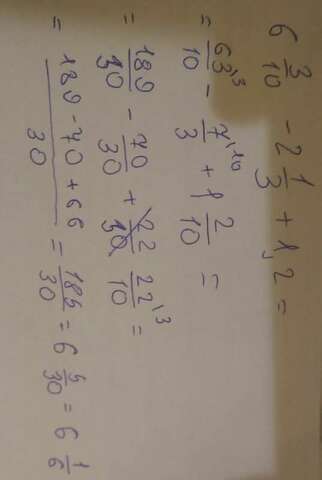 6 3/10 - 2 1/3 + 1,2 =
= 63/10 ·3 - 7/3 ·10 + 1 2/10 =
= 189/30 - 70/30 + 22/10 22/10 ·3 =
= (189 - 70 + 66)/30 = 185/30 = 6 5/30 = 6 1/6